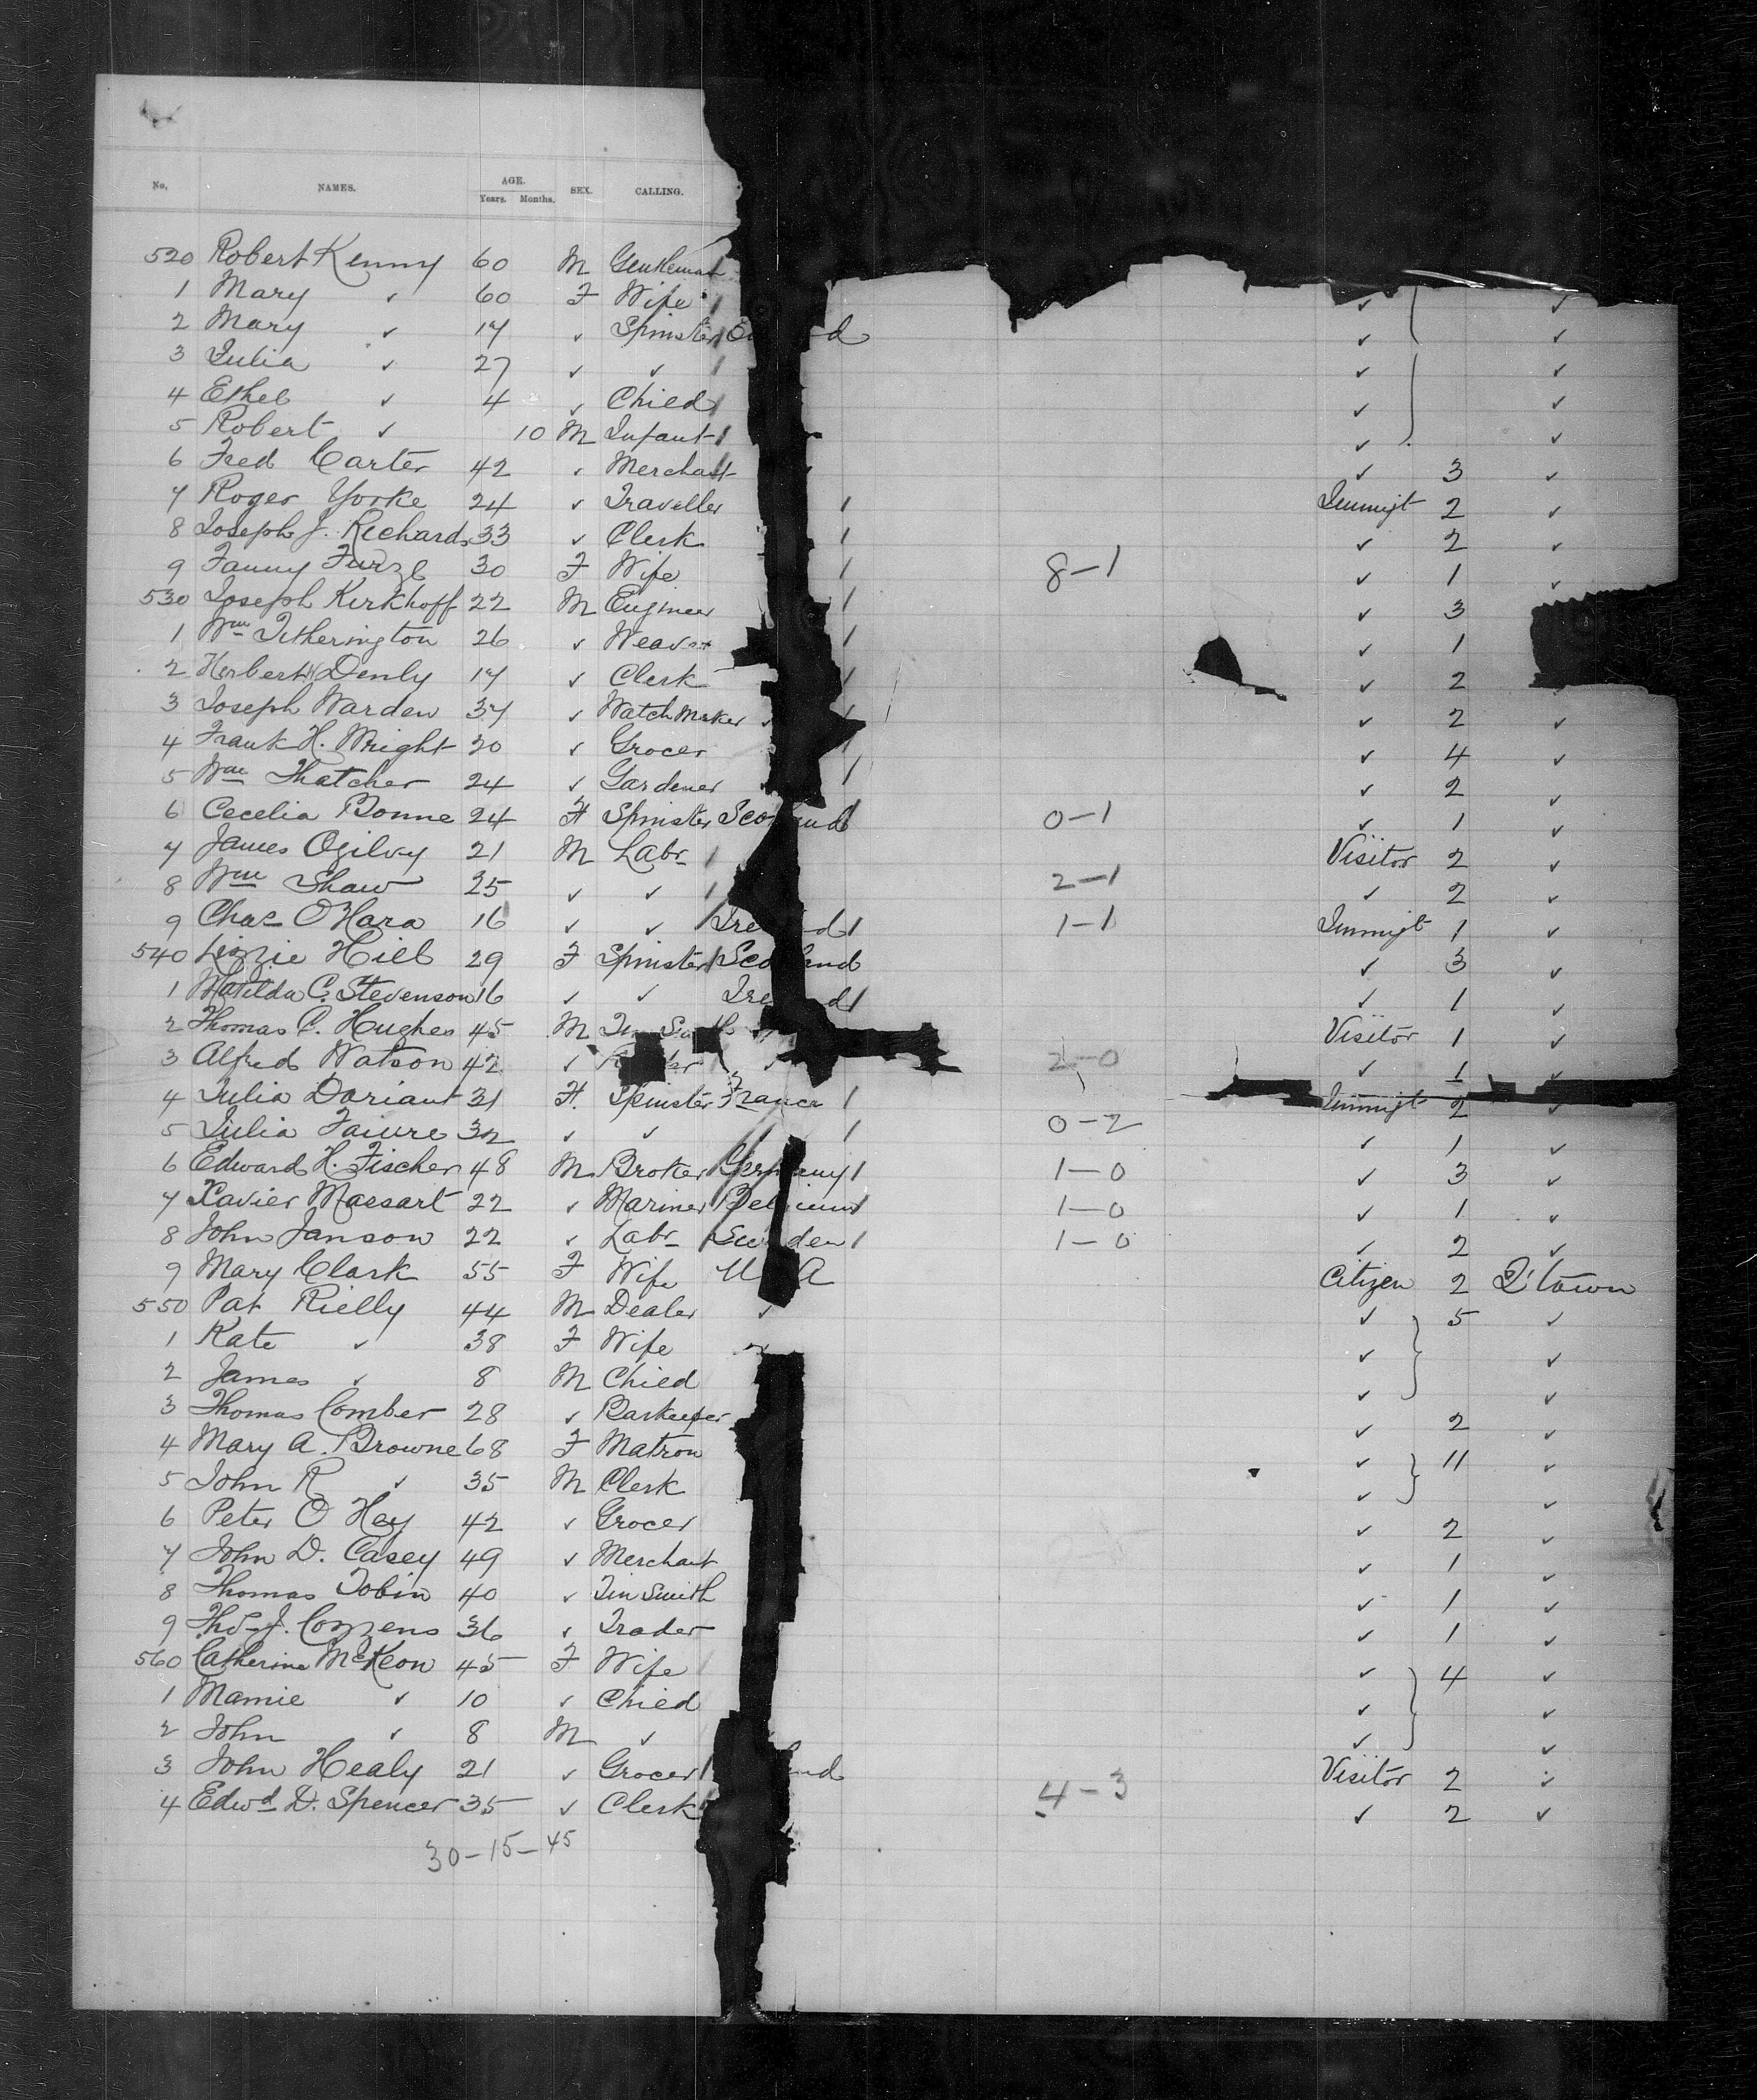 No. NAMES. AGE. Years. Months. SEX. CALLING.
520 Robert Kenny 60 M Gentleman
1 Mary ✓ 60 F Wife ✓ ✓
2 Mary ✓ 17 ✓ Spinster ✓ ✓
3 Julia ✓ 27 ✓ ✓ ✓ ✓
4 Ethel ✓ 4 ✓ Child ✓ ✓
5 Robert ✓ 10 M Infant ✓ ✓
6 Fred Carter 42 ✓ Merchant ✓ 3 ✓
7 Roger Yorke 24 ✓ Traveller Immigt 2 ✓
8 Joseph J. Richards 33 ✓ Clerk ✓ 2 ✓
9 Fanny Furze 30 F Wife 8-1 ✓ 1 ✓
530 Joseph Kirkhoff 22 M Engineer ✓ 3
1 Wm Titherington 26 ✓ Weaver ✓ 1
2 Herbert H Denly 17 ✓ Clerk ✓ 2
3 Joseph Warden 37 ✓ Watch Maker ✓ ✓ 2 ✓
4 Frank H. Wright 20 ✓ Grocer ✓ 4 ✓
5 Wm Thatcher 24 ✓ Gardener ✓ 2 ✓
6 Cecelia Bonne 24 F Spinster Scotland 0-1 ✓ 1 ✓
7 James Ogilvy 21 M Labr Visitor 2 ✓
8 Wm Shaw 25 ✓ ✓ 2-1 ✓ 2 ✓
9 Chas O'Hara 16 ✓ ✓ Ireland 1-1 Immigt 1 ✓
540 Lizzie Hill 29 F Spinster Scotland ✓ 3 ✓
1 Matilda C. Stevenson 16 ✓ ✓ Ireland ✓ 1 ✓
2 Thomas C. Hughes 45 M Visitor 1 ✓
3 Alfred Watson 42 ✓ 2-0 ✓ 1 ✓
4 Julia Doriant 31 F. Spinster France Immigt 2 ✓
5 Julia Faiure 32 ✓ ✓ 0-2 ✓ 1 ✓
6 Edward H. Fischer 48 M Broker Germany 1-0 ✓ 3 ✓
7 Xavier Massart 22 ✓ Mariner Belgium 1-0 ✓ 1 ✓
8 John Janson 22 ✓ Labr Sweden 1-0 ✓ 2 ✓
9 Mary Clark 55 F Wife U A Citizen 2 Q'town
550 Pat Rielly 44 M Dealer ✓ ✓ 5 ✓
1 Kate ✓ 38 F Wife ✓ ✓ ✓
2 James ✓ 8 M Child ✓ ✓
3 Thomas Comber 28 ✓ Barkeeper ✓ 2 ✓
4 Mary A. Browne 68 F Matron ✓ 11 ✓
5 John R ✓ 35 M Clerk ✓ ✓
6 Peter O Hey 42 ✓ Grocer ✓ 2 ✓
7 John D. Casey 49 ✓ Merchant ✓ 1 ✓
8 Thomas Tobin 40 ✓ Tin Smith ✓ 1 ✓
9 Thos J. Cozzens 36 ✓ Trader ✓ 1 ✓
560 Catherine McKeon 45 F Wife ✓ 4 ✓
1 Mamie ✓ 10 ✓ Child ✓ ✓
2 John ✓ 8 M ✓ ✓ ✓
3 John Healy 21 ✓ Grocer Visitor 2 ✓
4 Edwd D. Spencer 35 ✓ Clerk 4-3 ✓ 2 ✓
30-15-45